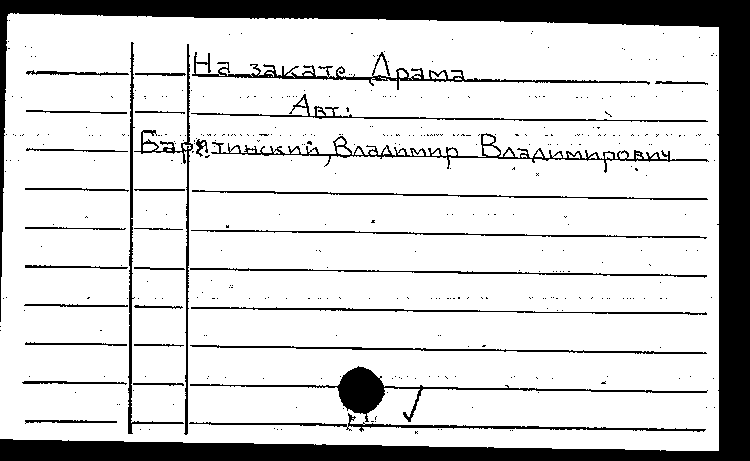 На закате Драма
Авт.:
Барятинский, Владимир Владимирович